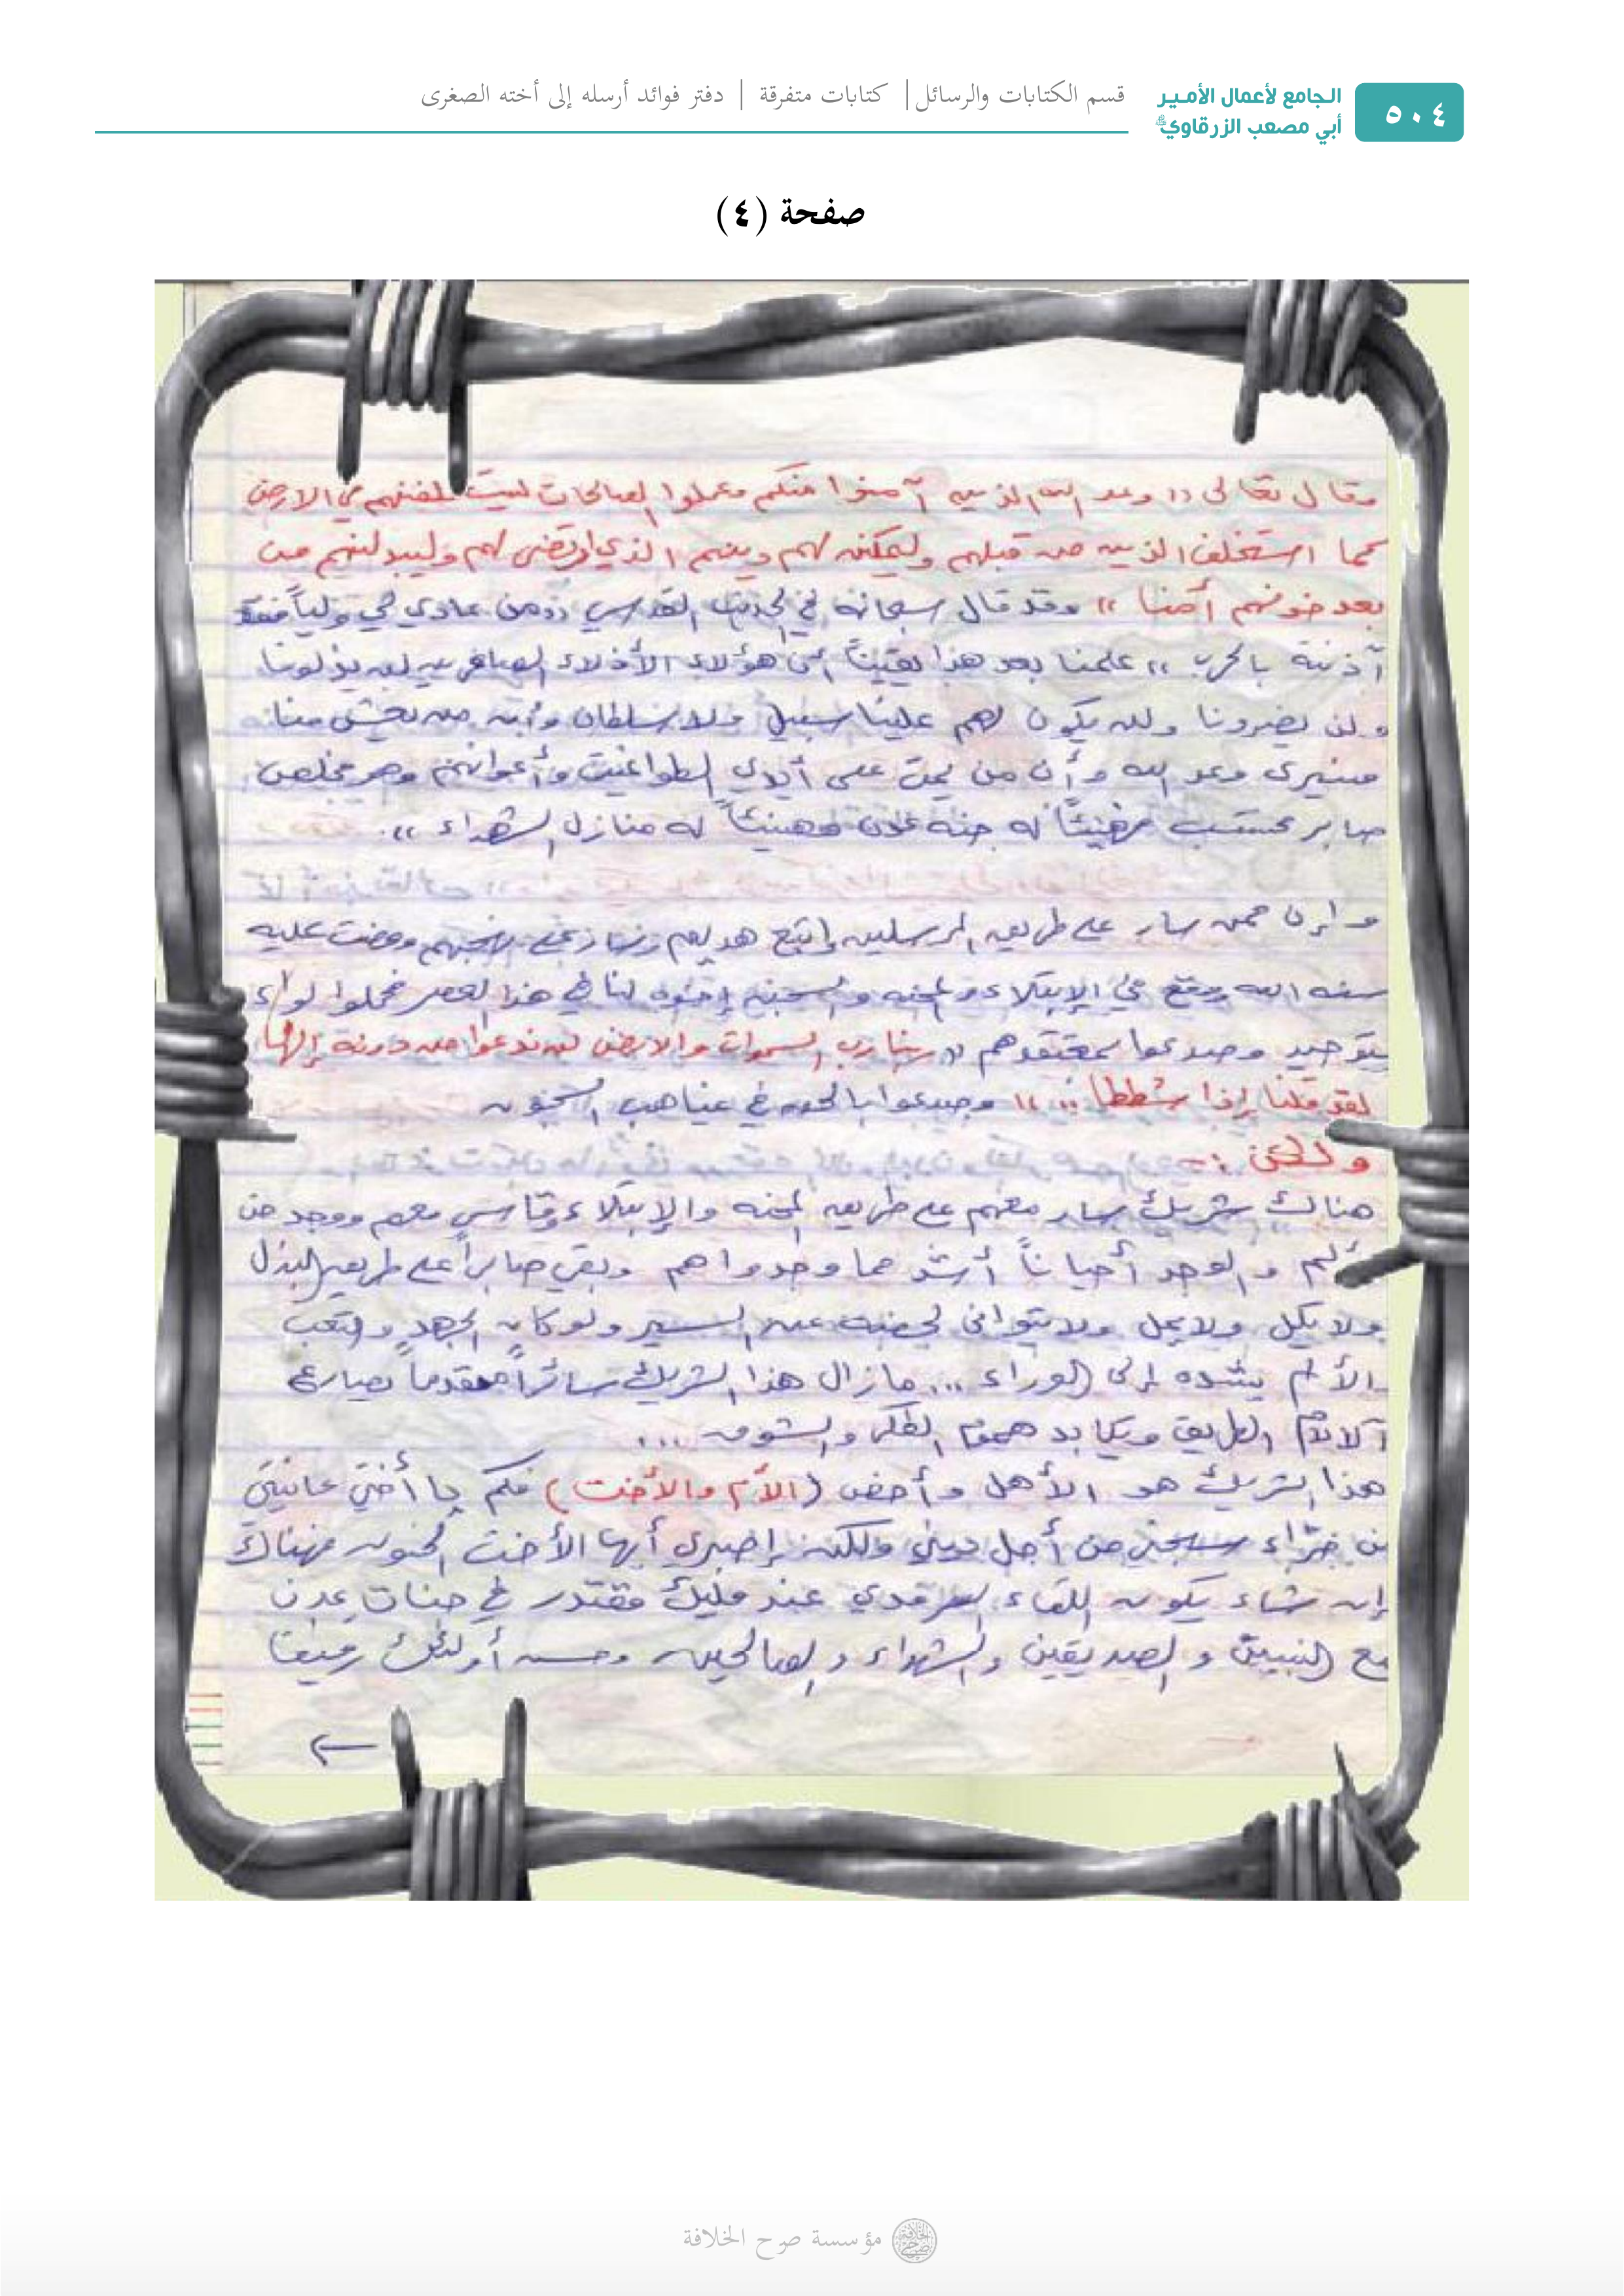 ٥٠٤
الجامع لأعمال الأمير
أبي مصعب الزرقاوي
قسم الكتابات والرسائل | كتابات متفرقة | دفتر فوائد أرسله إلى أخته الصغرى
صفحة (٤)
وقال تعالى (( وعد الله الذين آمنوا منكم وعملوا الصالحات ليستخلفنهم في الارض
كما استخلف الذين من قبلهم وليمكنن لهم دينهم الذي ارتضى لهم وليبدلنهم من
بعد خوفهم أمنا )) وقد قال سبحانه في الحديث القدسي ((ومن عادى لي ولياً فقد
آذنته بالحرب )) علمنا بعد هذا يقيناً أن هؤلاء الأذلاء الصاغرين لن يؤلونا
ولن يضرونا ولن يكون لهم علينا سبيل ولا سلطان وأن من يعش منا
فسيرى وعد الله وأن من يمت على أيدي الطواغيت وأعوانهم وهو مخلص
صابر محتسب فهنيئاً له جنة عدن وهنيئاً له منازل الشهداء )).
وإن ممن سار على طريق المرسلين واتبع هديهم وسار على نهجهم ومضت عليه
سنة الله ووقع في الإبتلاء والمحنة والسجن إخوة لنا في هذا العصر فحملوا لواء
التوحيد وصدعوا بمعتقدهم (( ربنا رب السموات والارض لن ندعوا من دونه إلهاً
لقد قلنا إذا شططا .. )) وصدعوا بالحق في غياهب السجون
ولكن :-
هنالك شريك سار معهم على طريق المحنة والإبتلاء وقاسي معهم ووجد من
ألم والوجد أحياناً أشد مما وجدوا هم وبقي صابراً على طريق البذل
ولا يكل ولا يمل ولا يتوانى لحظة عن السير ولو كان الجهد والتعب
الألم يشده إلى الوراء ... مازال هذا الشريك سائراً مقدوماً يصارع
آلام الطريق ويكابد هموم الفكر والشوق ...
هذا الشريك هو الأهل وأخص (الأم والأخت) فكم يا أختي عانيتي
من ضراء سجني من أجل ديني ولكن إصبري أيها الأخت الحنون فهناك
إن شاء يكون اللقاء السرمدي عند مليك مقتدر في جنات عدن
مع النبيين والصديقين والشهداء والصالحين وحسن أولئك رفيقا
←
مؤسسة صرح الخلافة